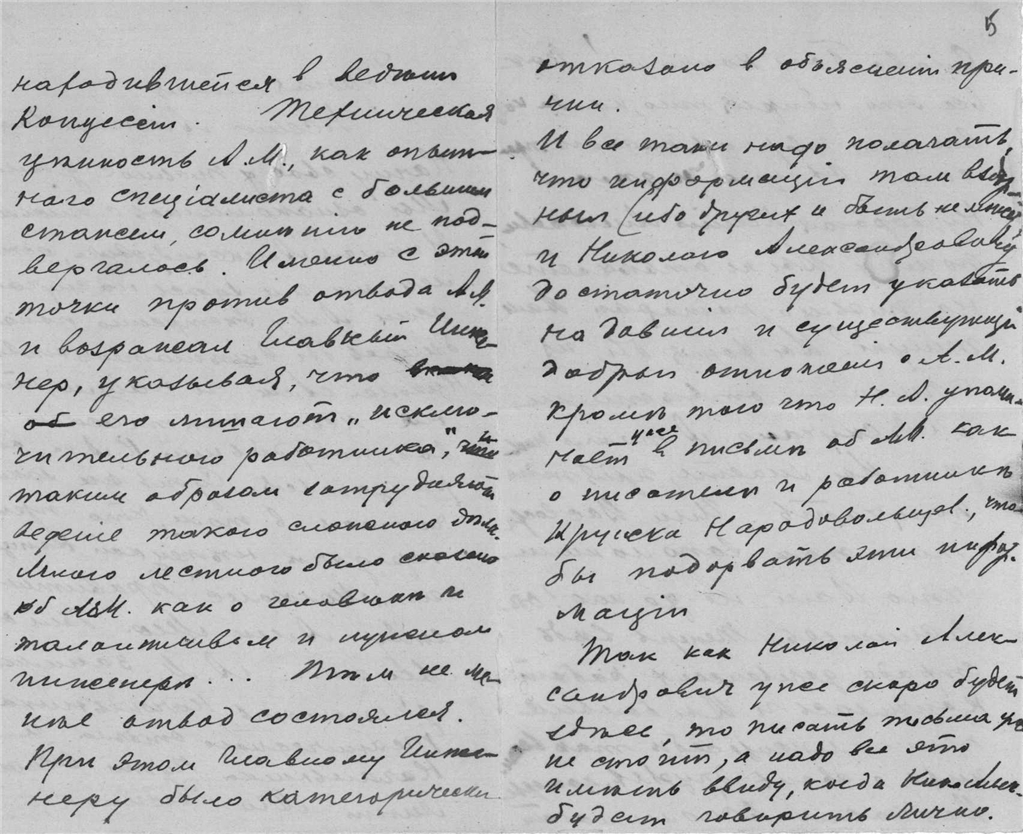 находившейся в ведении
Концессіи. Техническая
цѣнность А.М., как опыт-
наго спеціалиста с большим
стажем, сомнѣнію не под-
вергалось. Именно с этой
точки против отвода А.М.
и возражал Главный Инже-
нер, указывая, что
об его лишают „исклю-
чительнаго работника", и
таким образом затрудняют
веденіе такого сложнаго дѣла.
Много лестнаго было сказано
об А.М. как о человѣкѣ и
талантливым и нужном
инженерѣ... Тѣм не ме-
нѣе отвод состоялся.
При этом Главному Инже-
неру было категорически
5
отказано в объясненіи при-
чин.
И все таки надо полагать,
что информаціи там
ныя (ибо других и быть не
и Николаю Александровичу
достаточно будет указать
на давнія и существующія
добрыя отношенія с А.М.
кромѣ того что Н.А. упоми-
нает уже в письмѣ об А.М. как
о писателѣ и работникѣ
Кружка Народовольцев, что
бы подорвать эти инфор-
маціи
Так как Николай Алек-
сандрович уже скоро будет
здѣсь, то писать письма уже
не стоит, а надо все это
имѣть ввиду, когда Ник. Алек.
будет говорить лично.